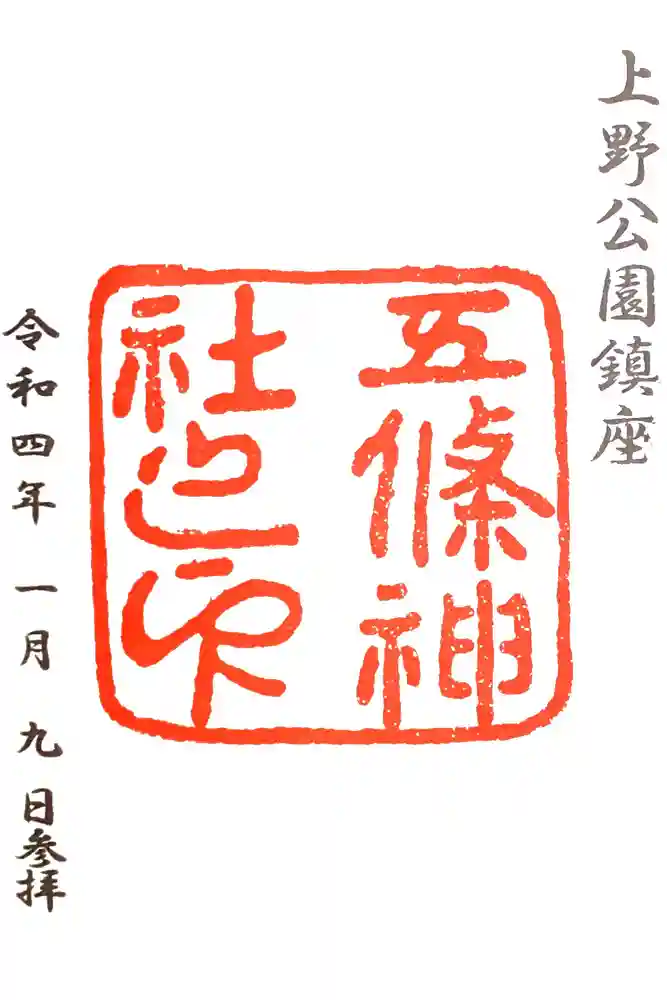 上野公園鎮座
五條神
社之印
令和四年一月九日参拝